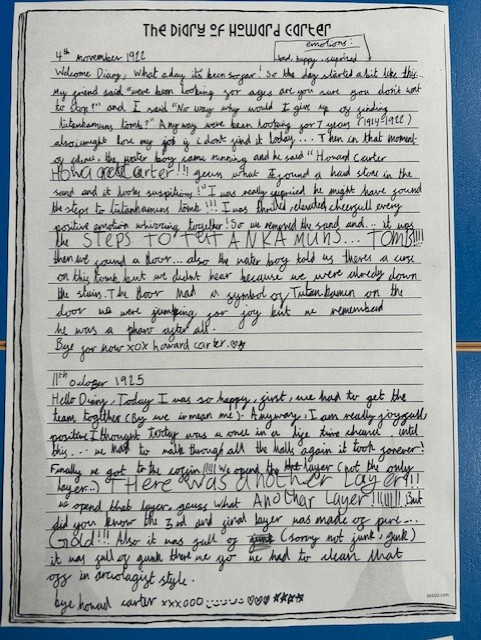 The Diary of Howard Carter
emotions:
sad, happy, suprised
4th november 1922
Welcome Diary, What a day its been so far! So the day started a bit like this...
my friend said "weve been looking for ages are you sure you don't want
to stop?" and I said "No way why would I give up of finding
tutankhamuns tomb?" Anyway weve been looking for 7 years (1914-1922)
also i might lose my job if i dont find it today... Then in that moment
of silence the water boy came running and he said "Howard Carter
Howard Carter!!! geuss what I found a hard stone in the
sand and it looks suspitious!" I was really suprised he might have found
the steps to tutankhamuns tomb!!! I was thrilled, elevated, cheerfull every
positive emotion whirring together! So we removed the sand and... it was
the STEPS TO TUTANKAMUNS... TOMB!!!!
then we found a floor... also the water boy told us theres a curse
on this tomb but we didnt hear because we were already down
the stairs. The floor had a symbol of Tutankamun on the
door we were jumping for joy but we remembered
he was a pharo after all.
Bye for now xox howard carter.
11th October 1925
Hello Diary, Today I was so happy, first, we had to get the
team together (By we i mean me). Anyway, I am really joyfull
positive I thought today was a once in a life time chance until
this... we had to walk through all the halls again it took forever!
Finally we got to the coffin!!!!! We opend the layer (not the only
layer...) THere was another Layer!!!
we opend that layer geuss what Another layer!!!!!!!! But
did you know the 3rd and final layer was made of pure...
Gold!!! Also it was full of junk (sorry not junk, gunk)
it was full of gunk there we go we had to clean that
off in arcologist style.
bye howard carter xxxooo
twinkl.com